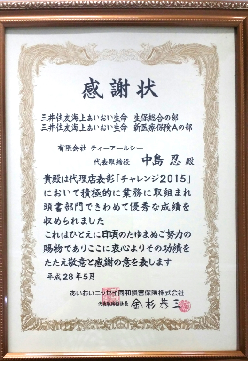 感謝状
三井住友海上あいおい生命 生保総合の部
三井住友海上あいおい生命 新医療保険Aの部
有限会社 ティーアールシー
代表取締役 中島 忍 殿
貴殿は代理店表彰「チャレンジ2015」
において積極的に業務に取組まれ
頭書部門できわめて優秀な成績を
収められました
これはひとえに日頃のたゆまぬご努力の
賜物でありここに衷心よりその功績を
たたえ敬意と感謝の意を表します
平成28年5月
あいおいニッセイ同和損害保険株式会社
金杉恭三